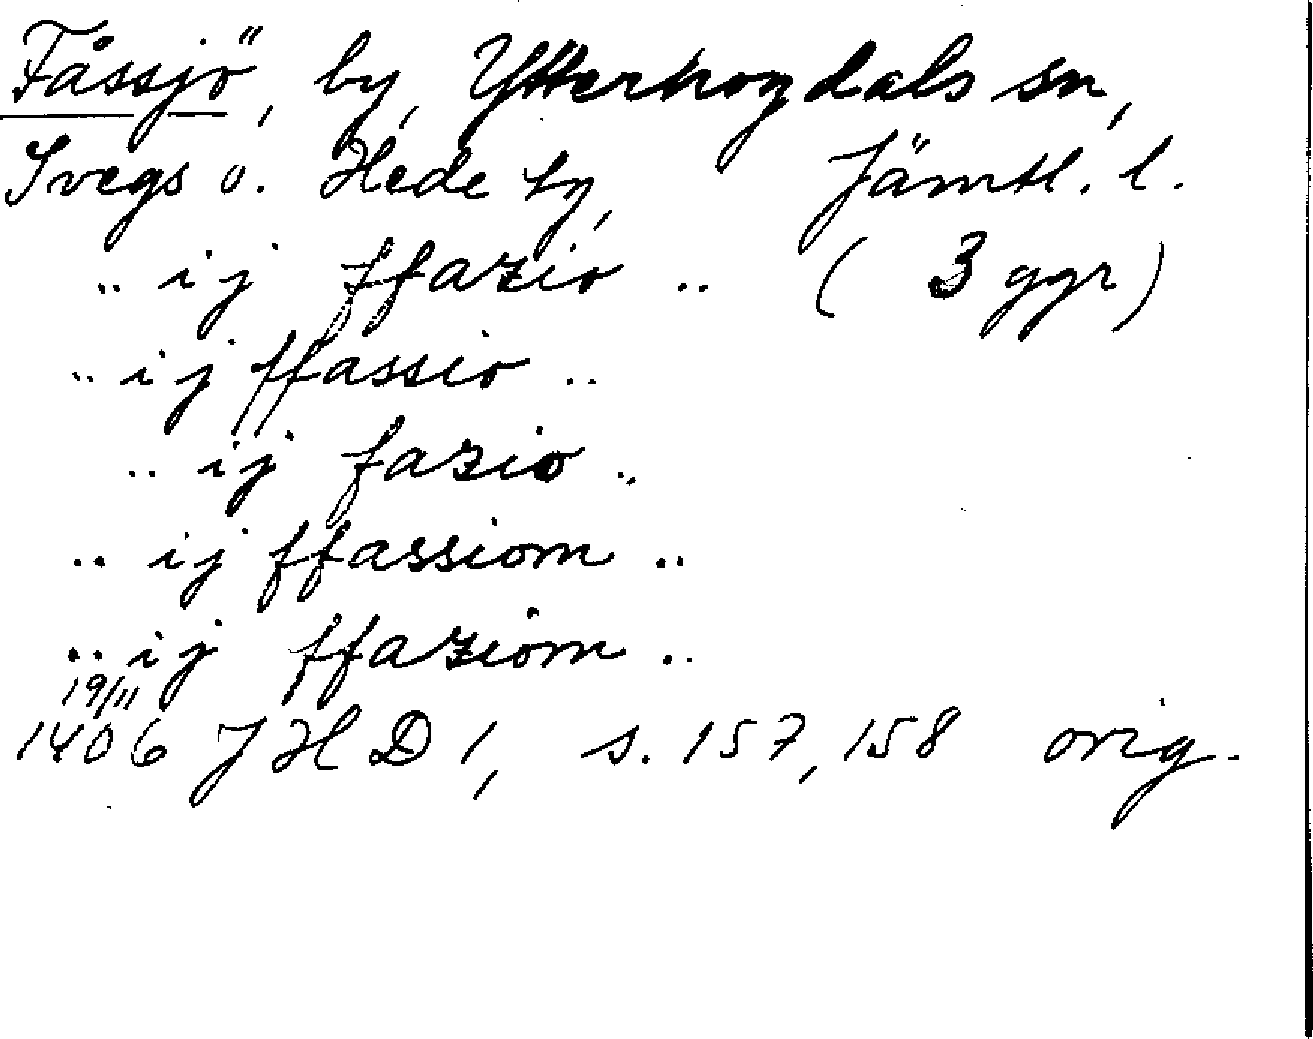 Fåssjö, by, Ytterhogdals sn,
Svegs o. Hede ty, Jämtl. l.
.. i j ffazio .. ( 3 ggr)
.. i j ffassio ..
.. i j fazio ..
.. i j ffassiom ..
.. i j ffaziom ..
19/11
1406 JHD 1, s. 157, 158 orig.